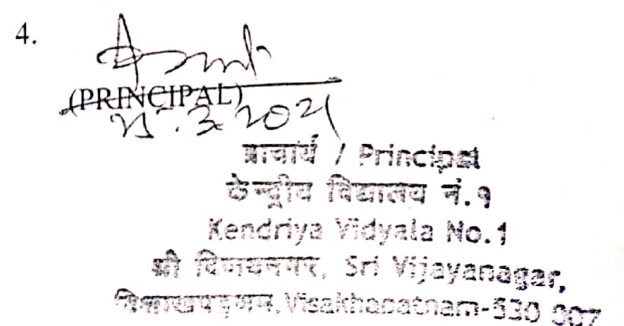 4.
(PRINCIPAL)
.3.2021
प्राचार्य / Principal
केन्द्रीय विद्यालय नं.१
Kendriya Vidyala No.1
श्री विजयनगर, Sri Vijayanagar,
विशाखपट्टणम, Visakhapatnam-530 007